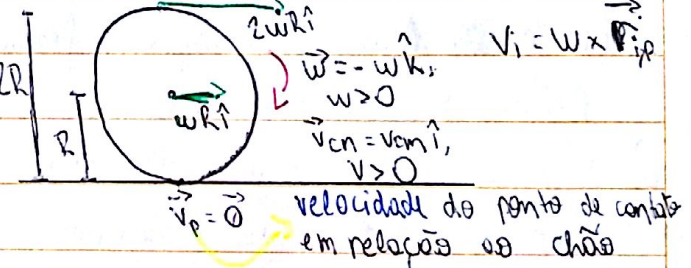 2ωRî
Vᵢ = ω × r⃗ᵢ,ₚ
2R
ω⃗ = -ωk̂,
ω>0
ωRî
R
v⃗cm = vcm î,
V>0
v⃗ₚ = 0⃗
velocidade do ponto de contato
em relação ao chão